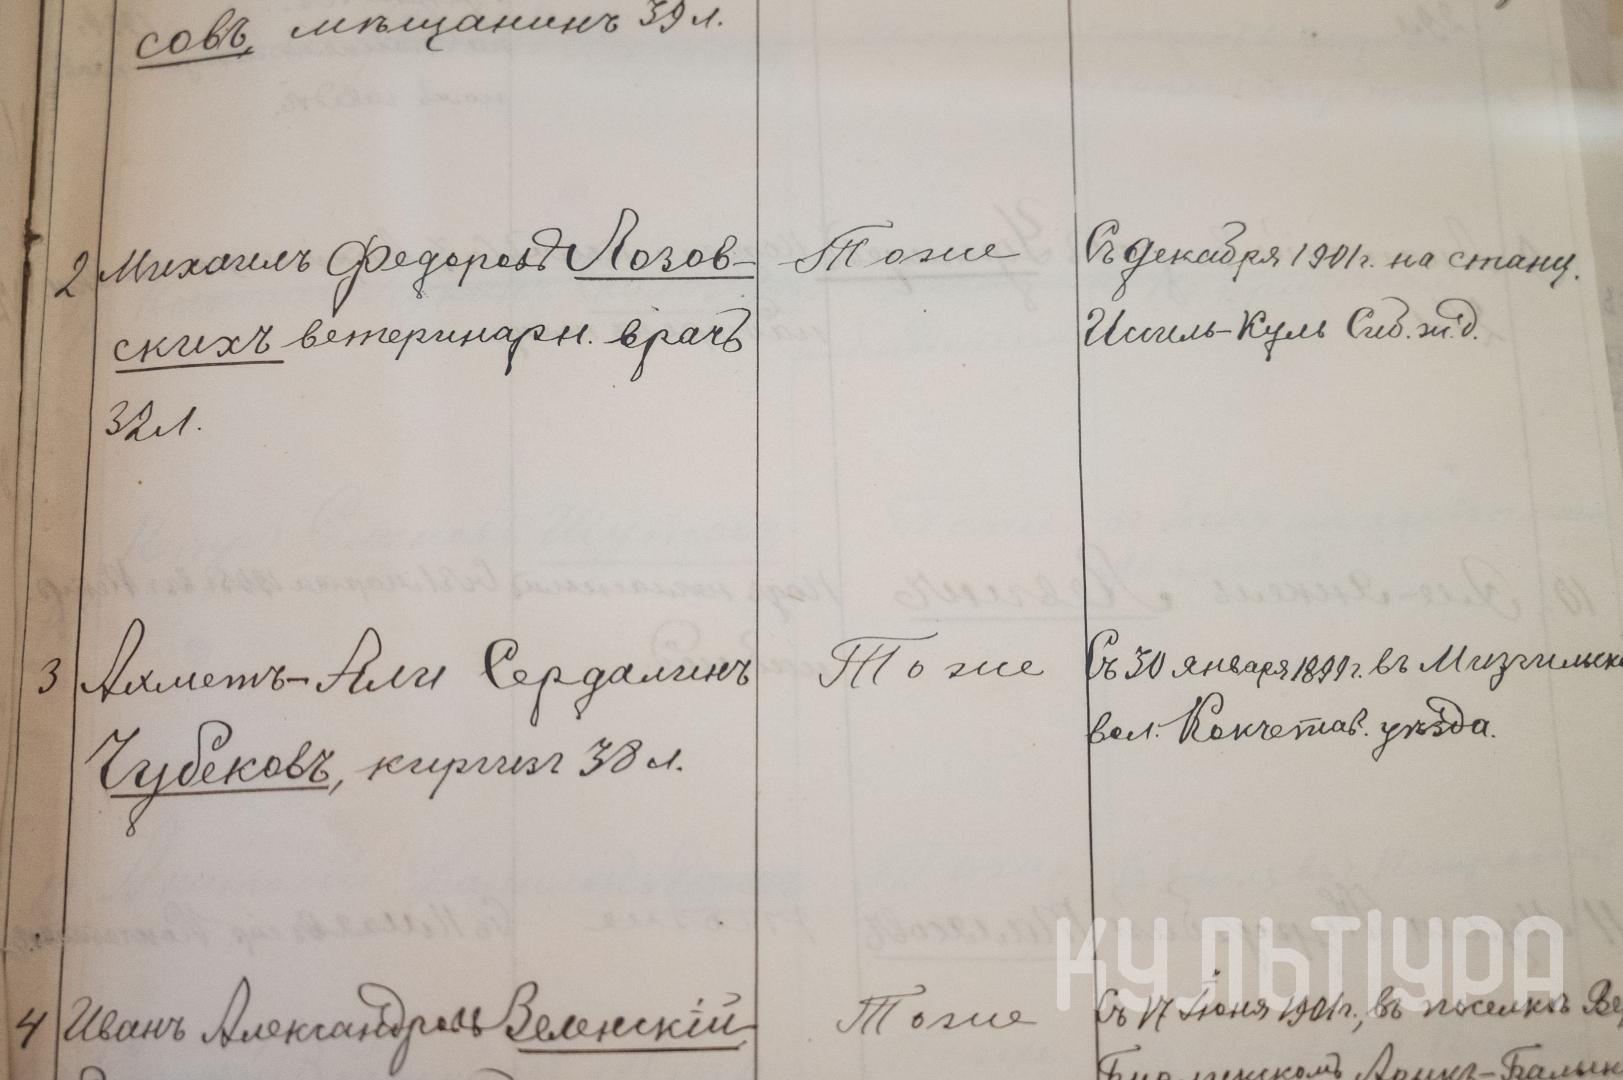 совъ, мѣщанинъ 39 л.
2 Михаилъ Федоровъ Лозов- Тоже Съ декабря 1901 г. на станц.
скихъ ветеринарн. врачъ Исиль-Куль Сиб. ж. д.
32 л.
3 Ахметъ-Али Сердалинъ Тоже Съ 30 января 1899 г. въ Мизгильско
Чубековъ, киргиз 38 л. вол. Кокчетав. уѣзда.
4 Иванъ Александровъ Зеленскій Тоже Съ 17 Іюня 1901 г., въ поселкѣ Ве
КУЛЬТУРА